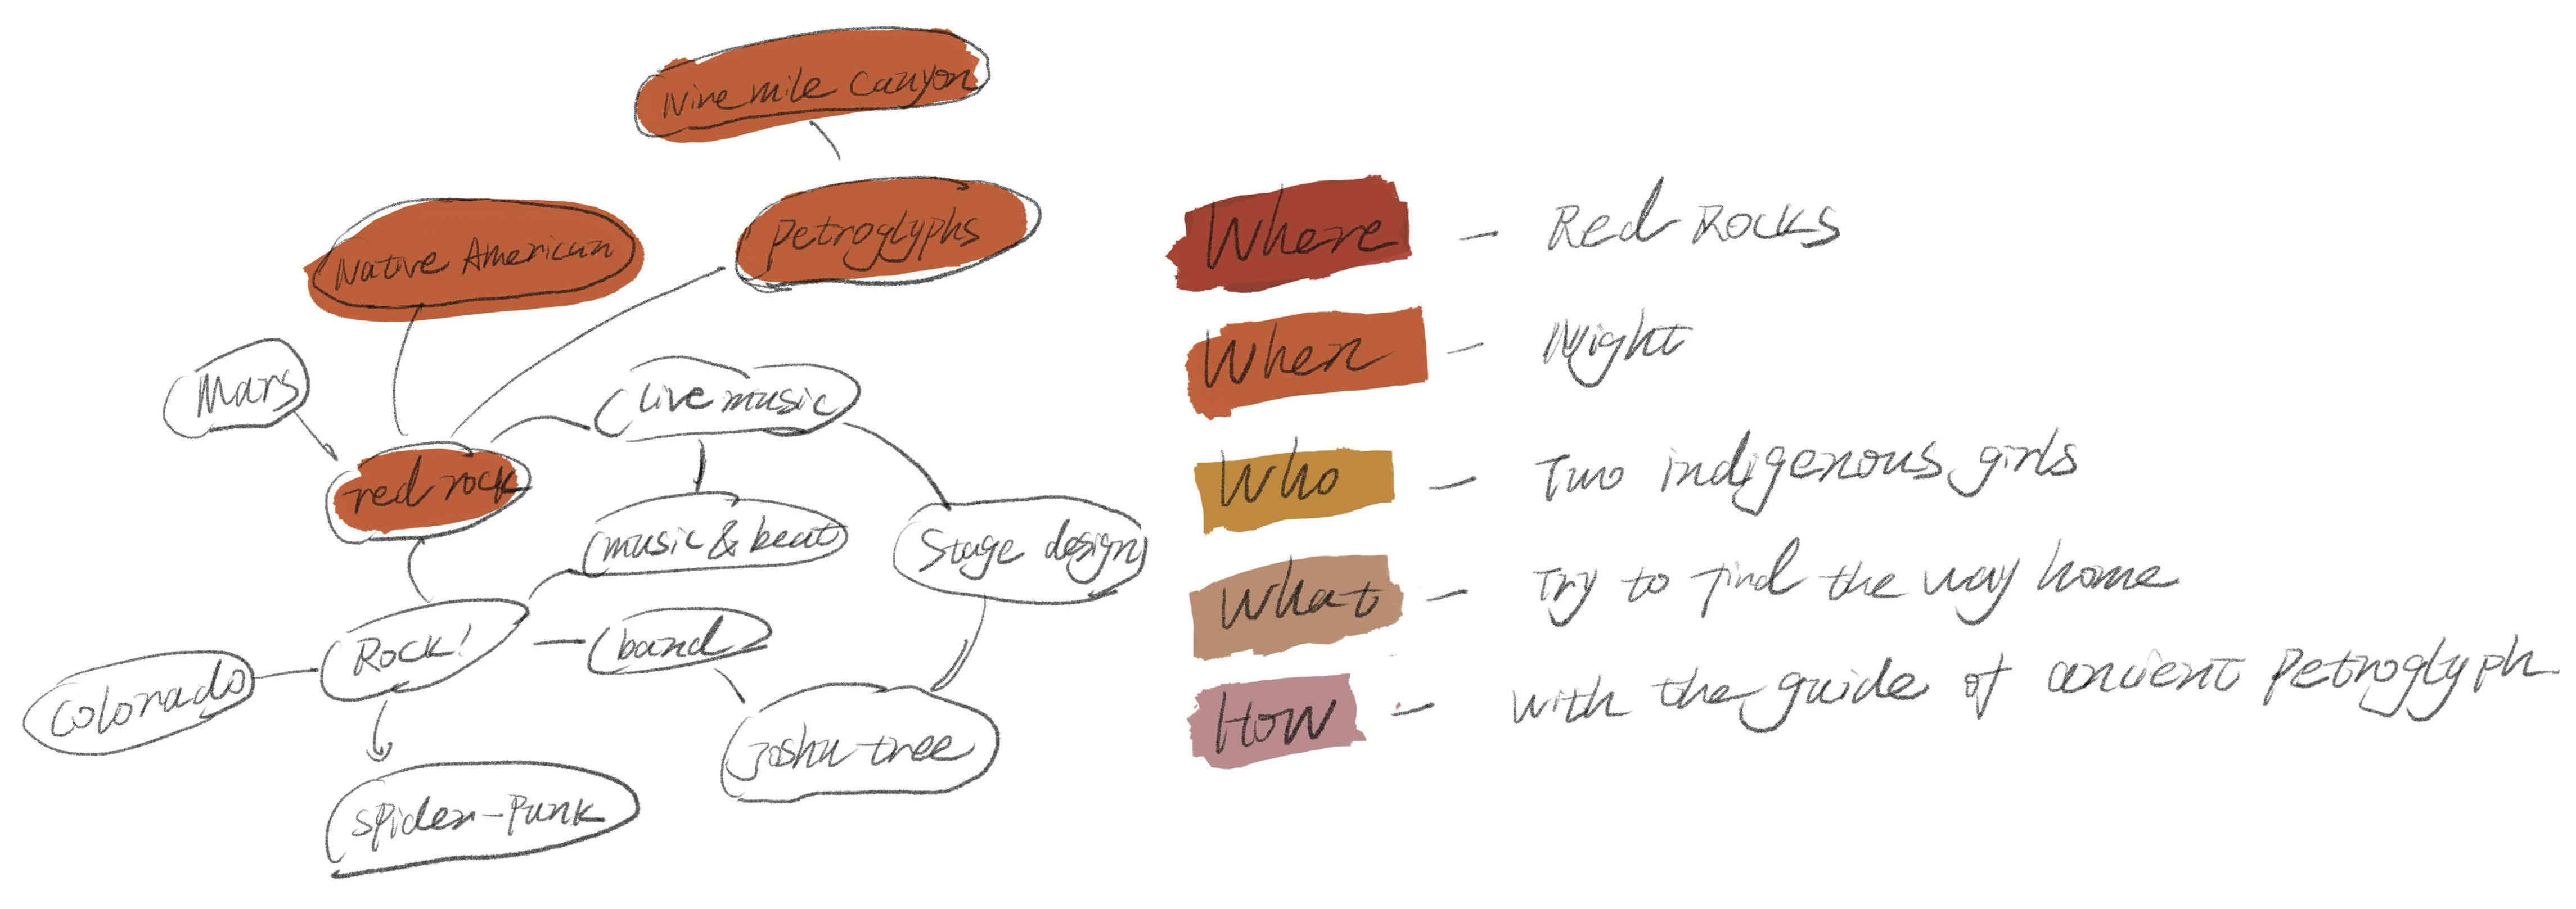 Nine mile Canyon
Native American
Petroglyphs
Mars
live music
red rock
music & beat
Stage design
Rock!
band
Colorado
Joshu tree
Spider-Punk
Where - Red Rocks
When - Night
Who - Two indigenous girls
What - Try to find the way home
How - with the guide of ancient Petroglyph